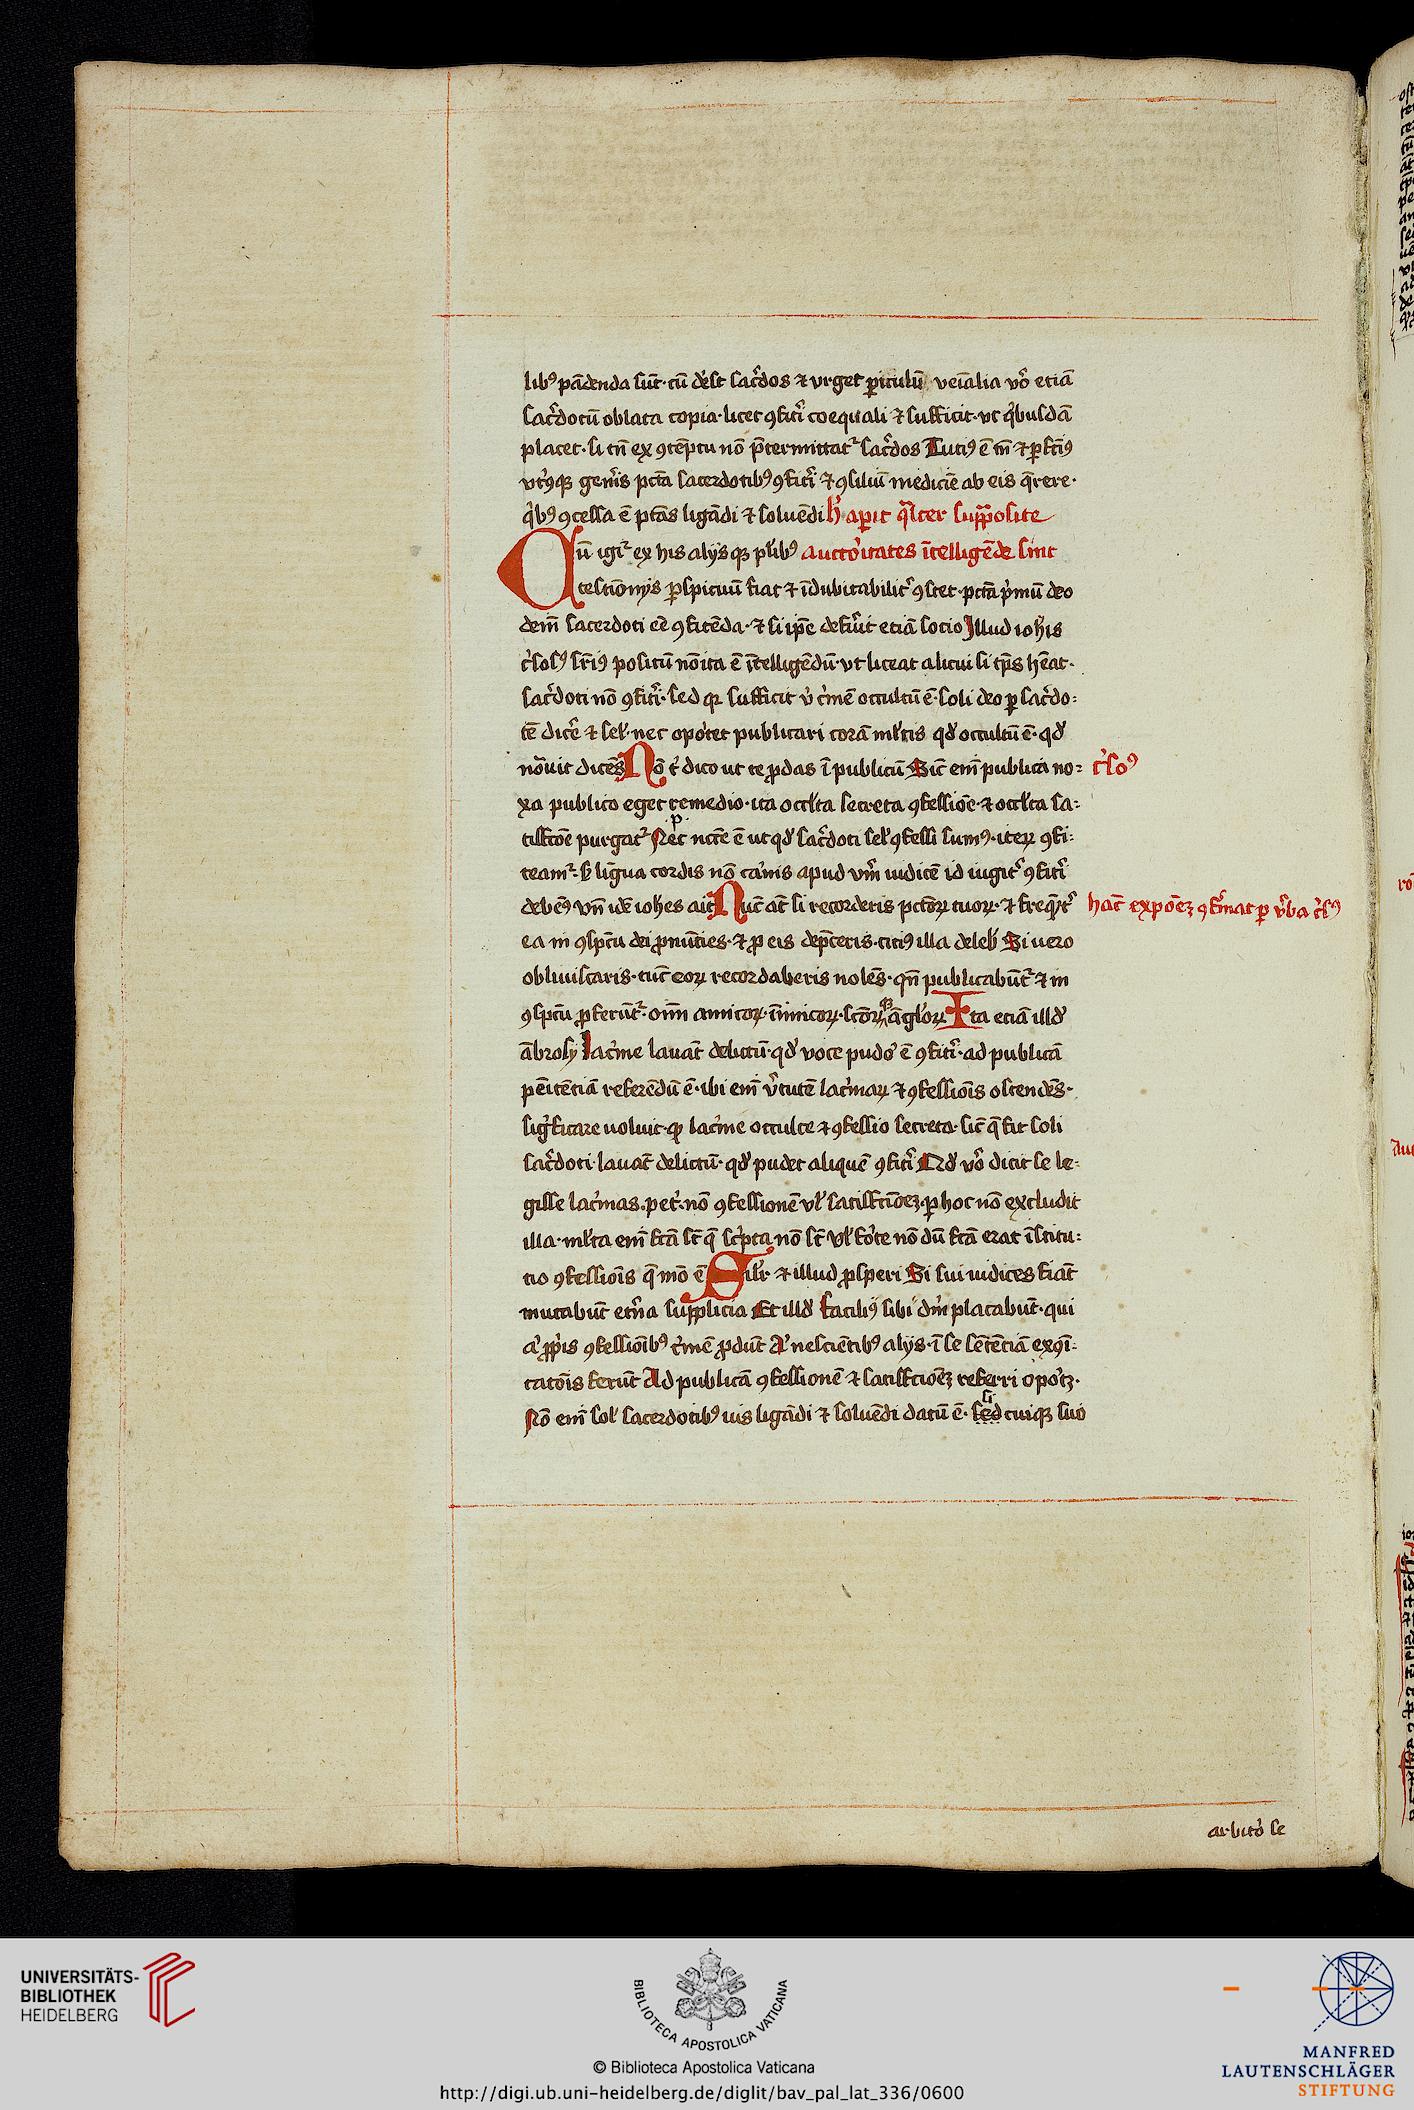 libꝯ pādenda sūt· cū deꝰst sac̄dos ⁊ vrget ꝑiculū veīalia vō etiā
sac̄dotū oblata copia· licet ꝯfitī coequali ⁊ sufficit· vt qͥbusdā
placet· si tn̄ ex ꝯtēptu nō p̄termittatᷣ sac̄dos Tutiꝯ ē tn̄ ⁊ ꝑfc̄iꝯ
vtͥꝯqꝫ gen̄is pctā sacerdotibꝯ ꝯfitī ⁊ ꝯsiliū medicīe ab eis q̄rere·
qͥbꝯ ꝯcessa ē ptās ligādi ⁊ soluēdi hͥ aꝑit qͣliter supͣposite
Qū igiᷣ ex his alijs qꝫ plibꝯ auctoͥitates ītelligēde sint
testiōnijs ꝑspicuū fiat ⁊ īdubitabiliᷣ ꝯstet· pctā pͥmū deo
dem̄ sacerdoti eē ꝯfitēda· ⁊ si ip̄e defūit etiā socio Illud ioh̄is
cͥsosꝯ sr̄iꝯ positū nō ita ē ītelligēdū· vt liceat alicui si tp̄s hēat·
sac̄doti nō ꝯfitī· sed qꝛ sufficit vͥ cͥmē occultū ē· soli deo ꝑ sac̄do:
tē dicē ⁊ sel̄· nec opoͥtet publicari corā ml̄tis qd̄ occultū ē· qd̄
nōuit dicēs Nō tͥ dico ut te ꝓdas ī publicū Sic̄ em̄ publica no:
cͥsoꝯ
xa publico eget remedio· ita occl̄ta secreta ꝯfessiōe· ⁊ occl̄ta sa:
tisfcōe purgatᷣ Nec ncc̄e ē ut qd̄ sac̄doti sel̄ ꝯfessi sumꝯ· iteꝝ ꝯfi:
teamᷣ· sꝫ ligua cordis nō caͥnis apud vm̄ iudicē id iugitᷣ ꝯfitī
debēꝯ vn̄ idē ioh̄es ait Nūc at̄ si recorderis pctōꝝ tuoꝝ· ⁊ freqͥtᷣ
hāc expōeꝫ ꝯfͥmat ꝑ vͥba cͥsꝯ
ea in ꝯspc̄u dei ꝓnūties· ⁊ ꝓ eis dep̄ceris· citiꝯ illa deleb̄ Si uero
obliuiscaris· tūc eoꝝ recordaberis nolēs· qn̄ publicabūtᷣ ⁊ in
ꝯspc̄u ꝓferūtᷣ· oīm amicoꝝ· īimicoꝝ· scōꝝ qꝫ āgloꝝ Ita etiā illd̄
ābrosij lacͥme lauāt delictū· qd̄ voce pudoͥ ē ꝯfitī· ad publicā
pēitētiā referēdū ē· ibi em̄ vͥtutē lacͥmaꝝ ⁊ ꝯfessiōis ostendēs·
sigͥficare uoluit· ꝙ lacͥme occulte ⁊ ꝯfessio secreta· sic̄ q̄ fit soli
sac̄doti· lauāt delictū· qd̄ pudet aliquē ꝯfitī Qd̄ vō dicit se le:
gisse lacͥmas· petͥ· nō ꝯfessionē vl̄ satisfctiōeꝫ· ꝑ hoc nō excludit
illa· ml̄ta em̄ fctā st̄ q̄ scͥpta nō st̄ Vl̄ foͥte nō dū fctā erat īstitu:
tio ꝯfessiōis q̄ mō ē Sil̄r ⁊ illud ꝓsperi Si sui iudices fiāt
mutabūt etn̄a supplicia Et illd̄ faciliꝯ sibi dm̄ placabūt· qui
aͥ ꝓpͥis ꝯfessiōibꝯ cͥmē ꝓdūt Aͥ nesciētibꝯ alijs· ī se sētētiā exꝯī:
catōis ferūt Ad publicā ꝯfessionē ⁊ satisfctiōeꝫ referri opoͥtꝫ·
Nō em̄ sol̄ sacerdotibꝯ ius ligādi ⁊ soluēdi datū ē· sed cuiqꝫ suo
arbitͦo se
UNIVERSITÄTS-
BIBLIOTHEK
HEIDELBERG
BIBLIOTECA APOSTOLICA VATICANA
© Biblioteca Apostolica Vaticana
http://digi.ub.uni-heidelberg.de/diglit/bav_pal_lat_336/0600
MANFRED
LAUTENSCHLÄGER
STIFTUNG